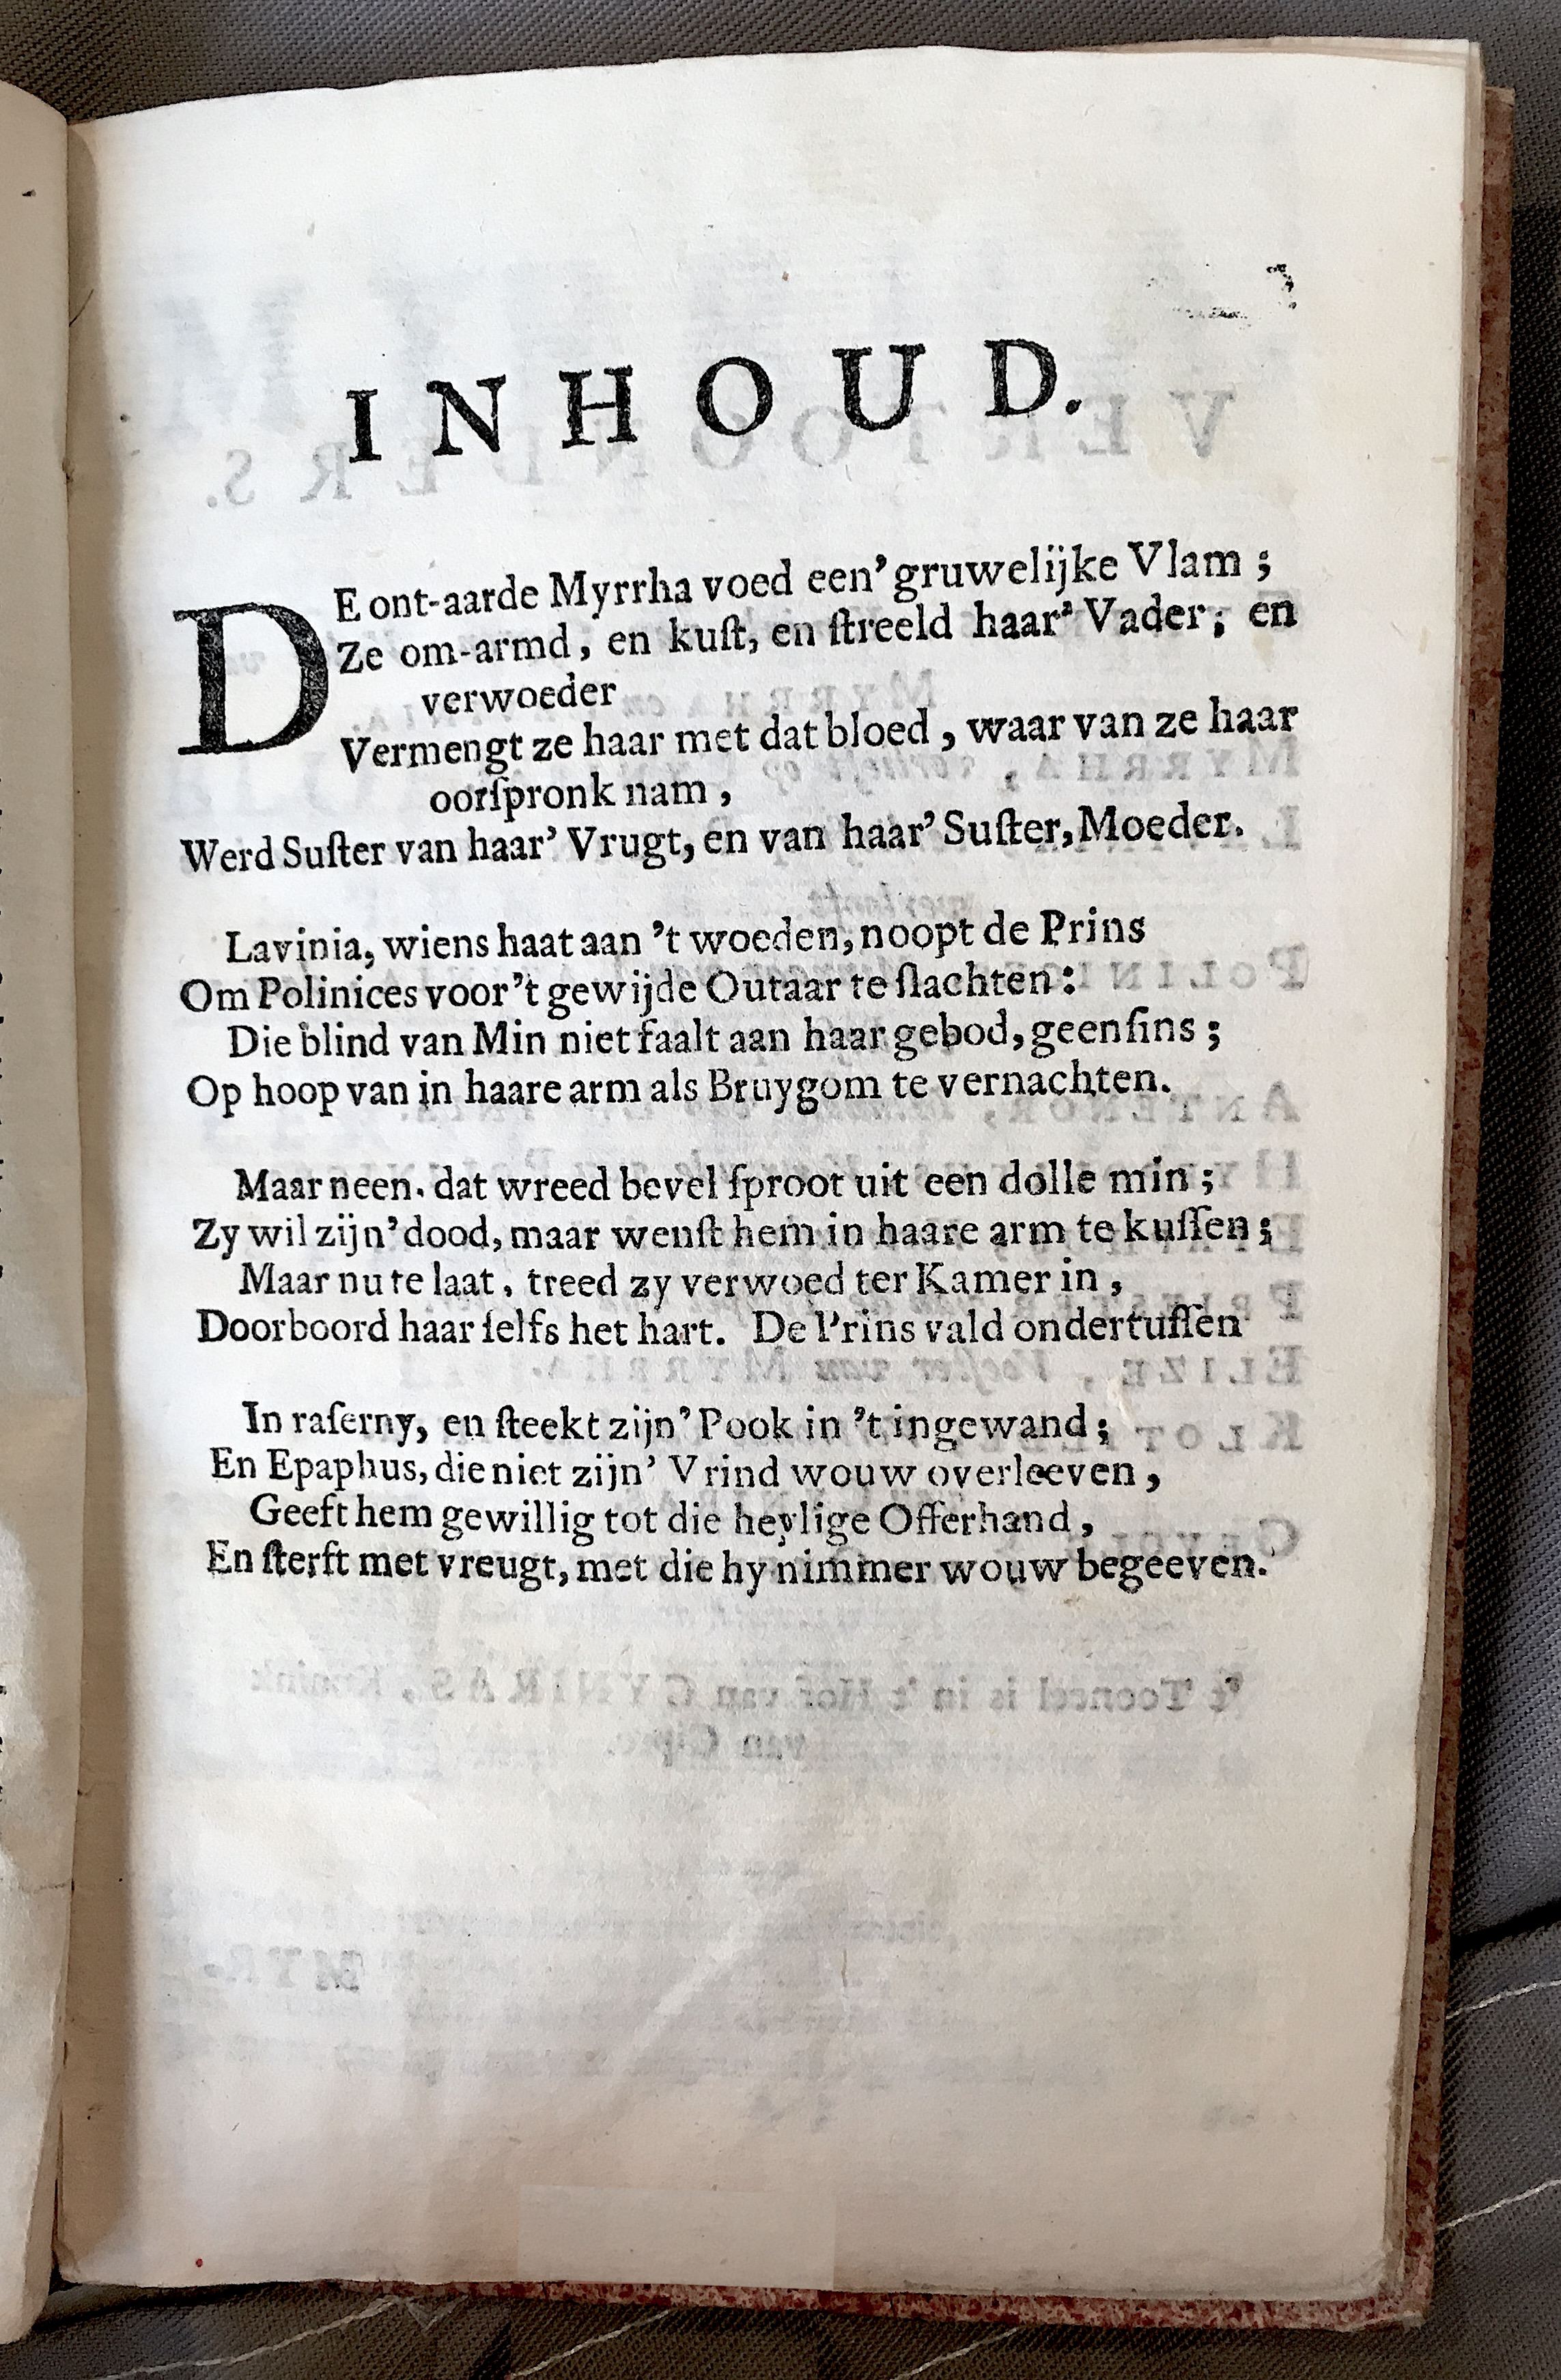 INHOUD.
DE ont-aarde Myrrha voed een' gruwelijke Vlam;
Ze om-armd, en kuſt, en ſtreeld haar' Vader; en
verwoeder
Vermengt ze haar met dat bloed, waar van ze haar
oorſpronk nam,
Werd Suſter van haar' Vrugt, en van haar' Suſter, Moeder.
Lavinia, wiens haat aan 't woeden, noopt de Prins
Om Polinices voor 't gewijde Outaar te ſlachten:
Die blind van Min niet faalt aan haar gebod, geenſins;
Op hoop van in haare arm als Bruygom te vernachten.
Maar neen. dat wreed bevel ſproot uit een dolle min;
Zy wil zijn' dood, maar wenſt hem in haare arm te kuſſen;
Maar nu te laat, treed zy verwoed ter Kamer in,
Doorboord haar ſelfs het hart. De Prins vald ondertuſſen
In raſerny, en ſteekt zijn' Pook in 't ingewand;
En Epaphus, die niet zijn' Vrind wouw overleeven,
Geeft hem gewillig tot die heylige Offerhand,
En ſterft met vreugt, met die hy nimmer wouw begeeven.